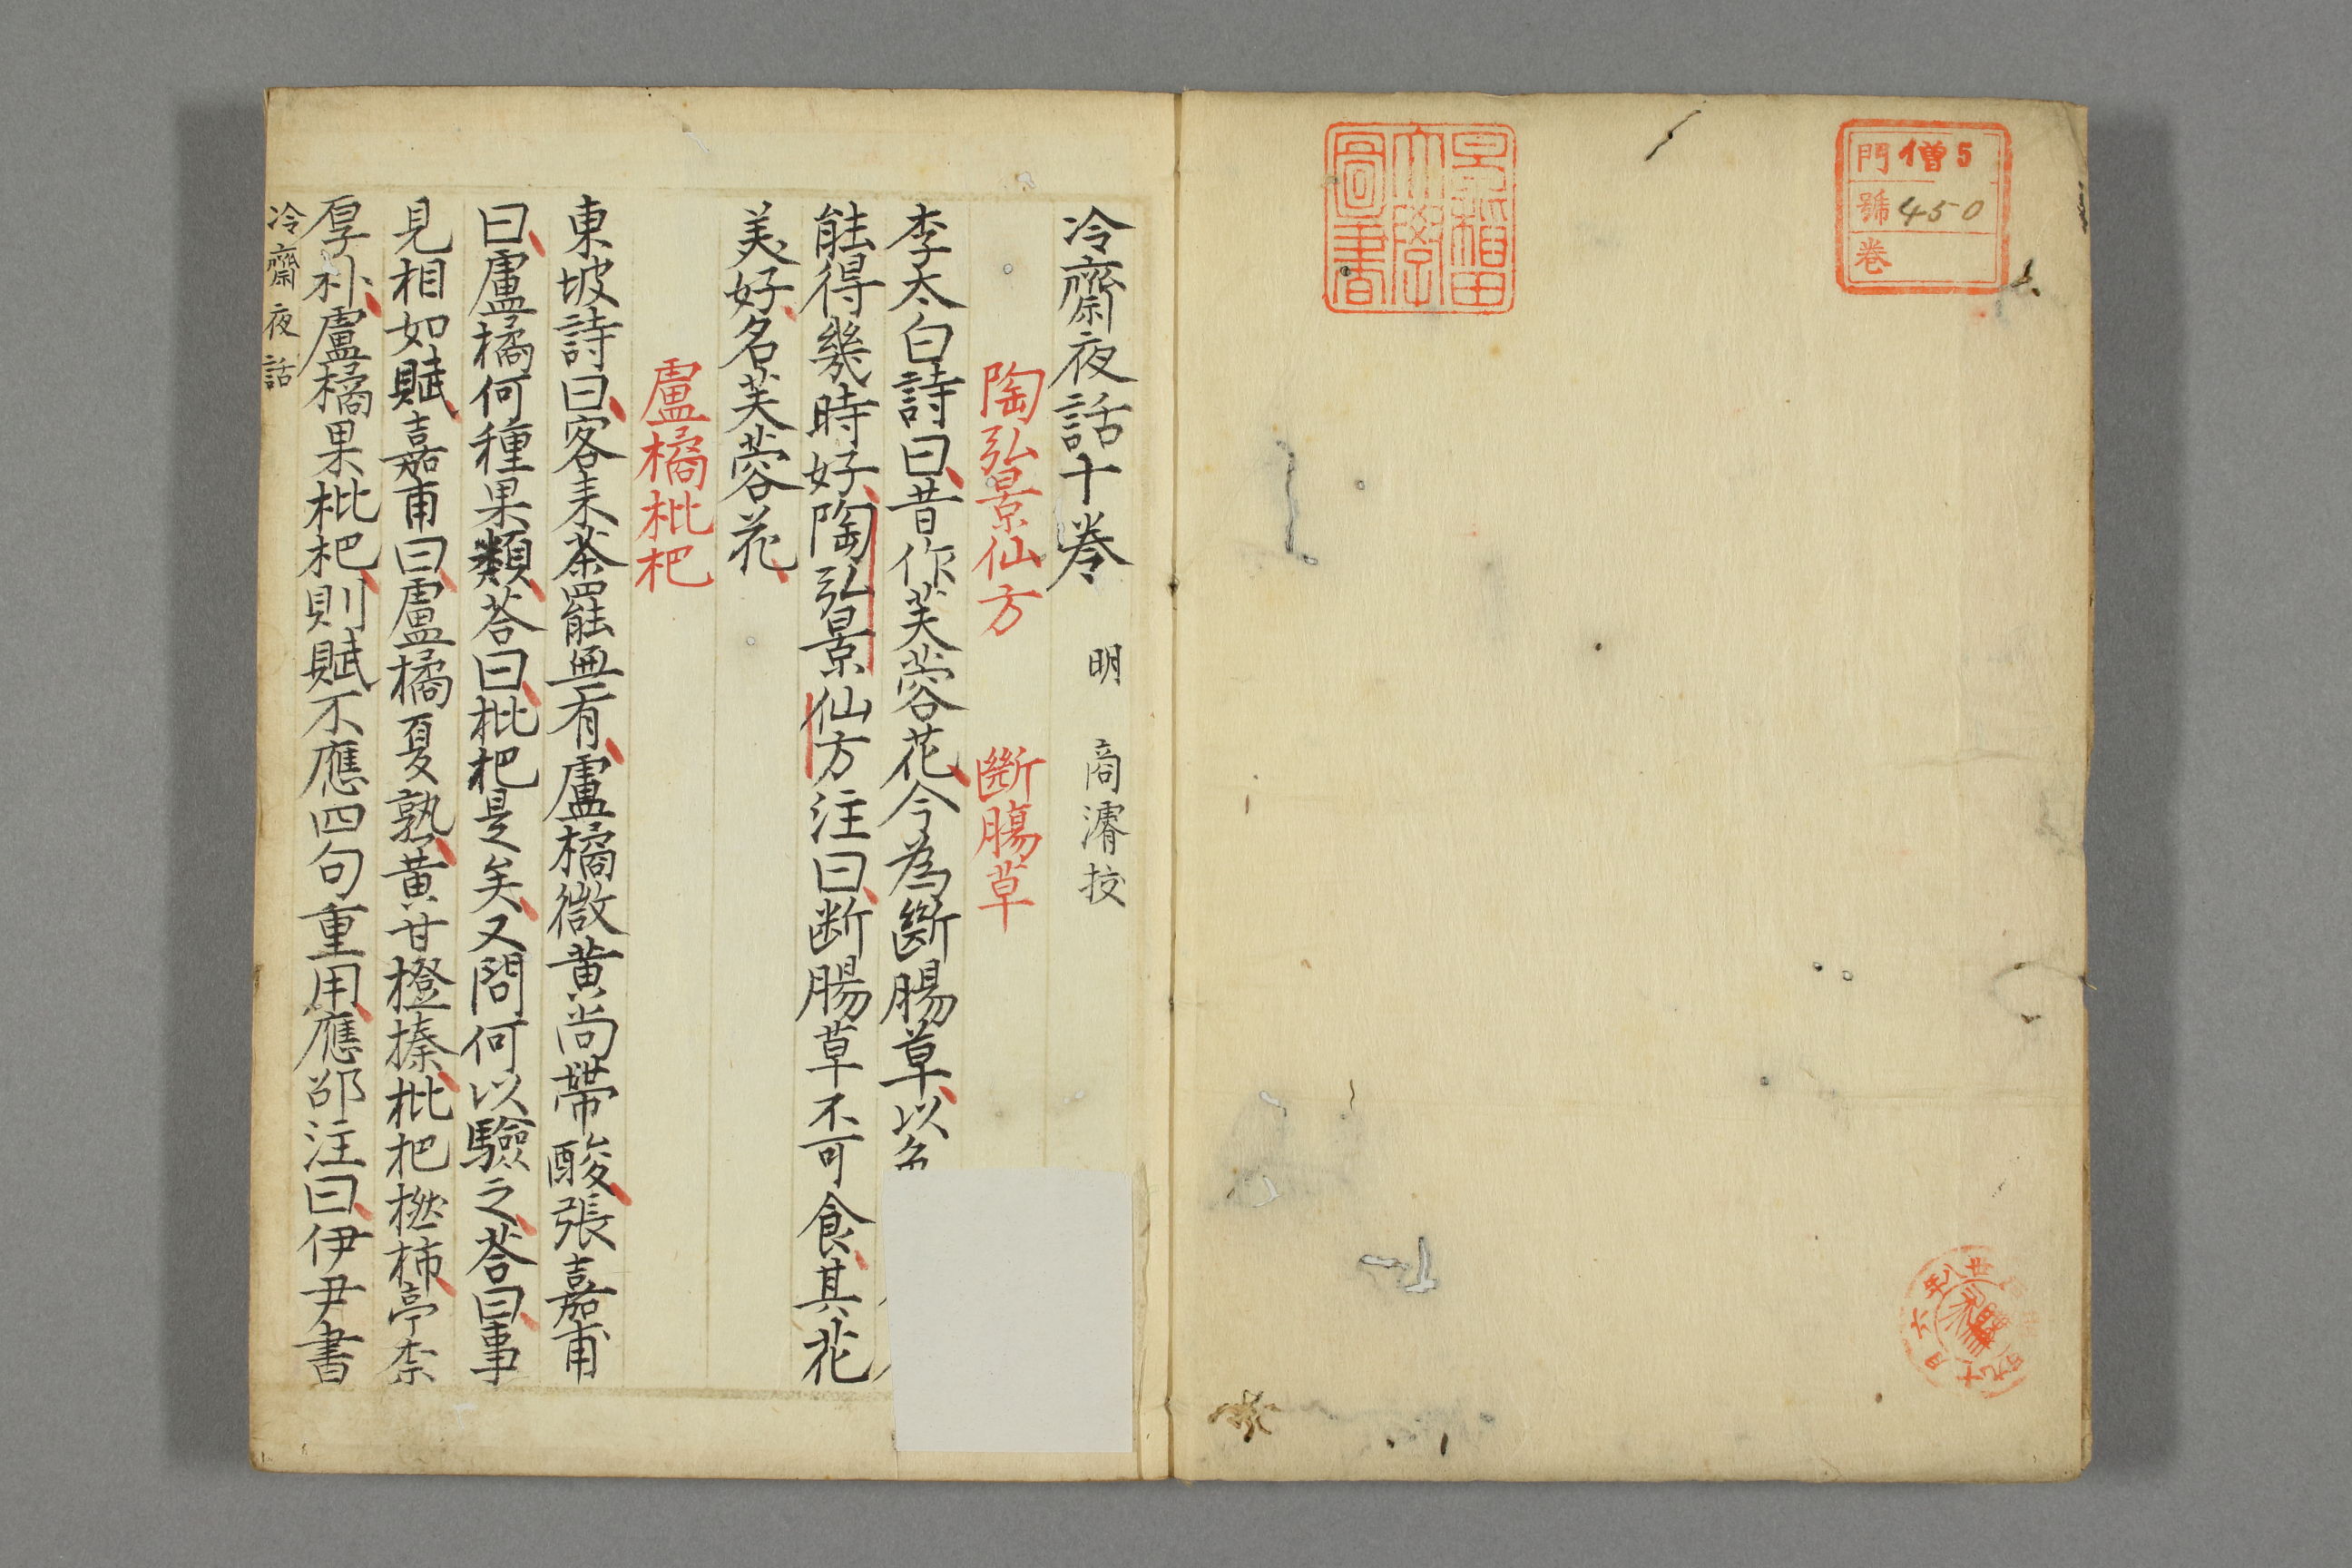 門 僧5
號 450
卷
早稻田
大學
圖書
冷齋夜話十卷 明 商濬挍
陶弘景仙方 斷腸草
李太白詩曰昔作芙蓉花今為斷腸草以色
能得幾時好陶弘景仙方注曰断腸草不可食其花
美好名芙蓉花
盧橘枇杷
東坡詩曰客来茶罷無有盧橘微黄尚帶酸張嘉甫
曰盧橘何種果類荅曰枇杷是矣又問何以驗之荅曰事
見相如賦嘉甫曰盧橘夏熟黄甘橙榛枇杷橪柿亭柰
厚朴盧橘果枇杷則賦不應四句重用應邵注曰伊尹書
冷齋夜話